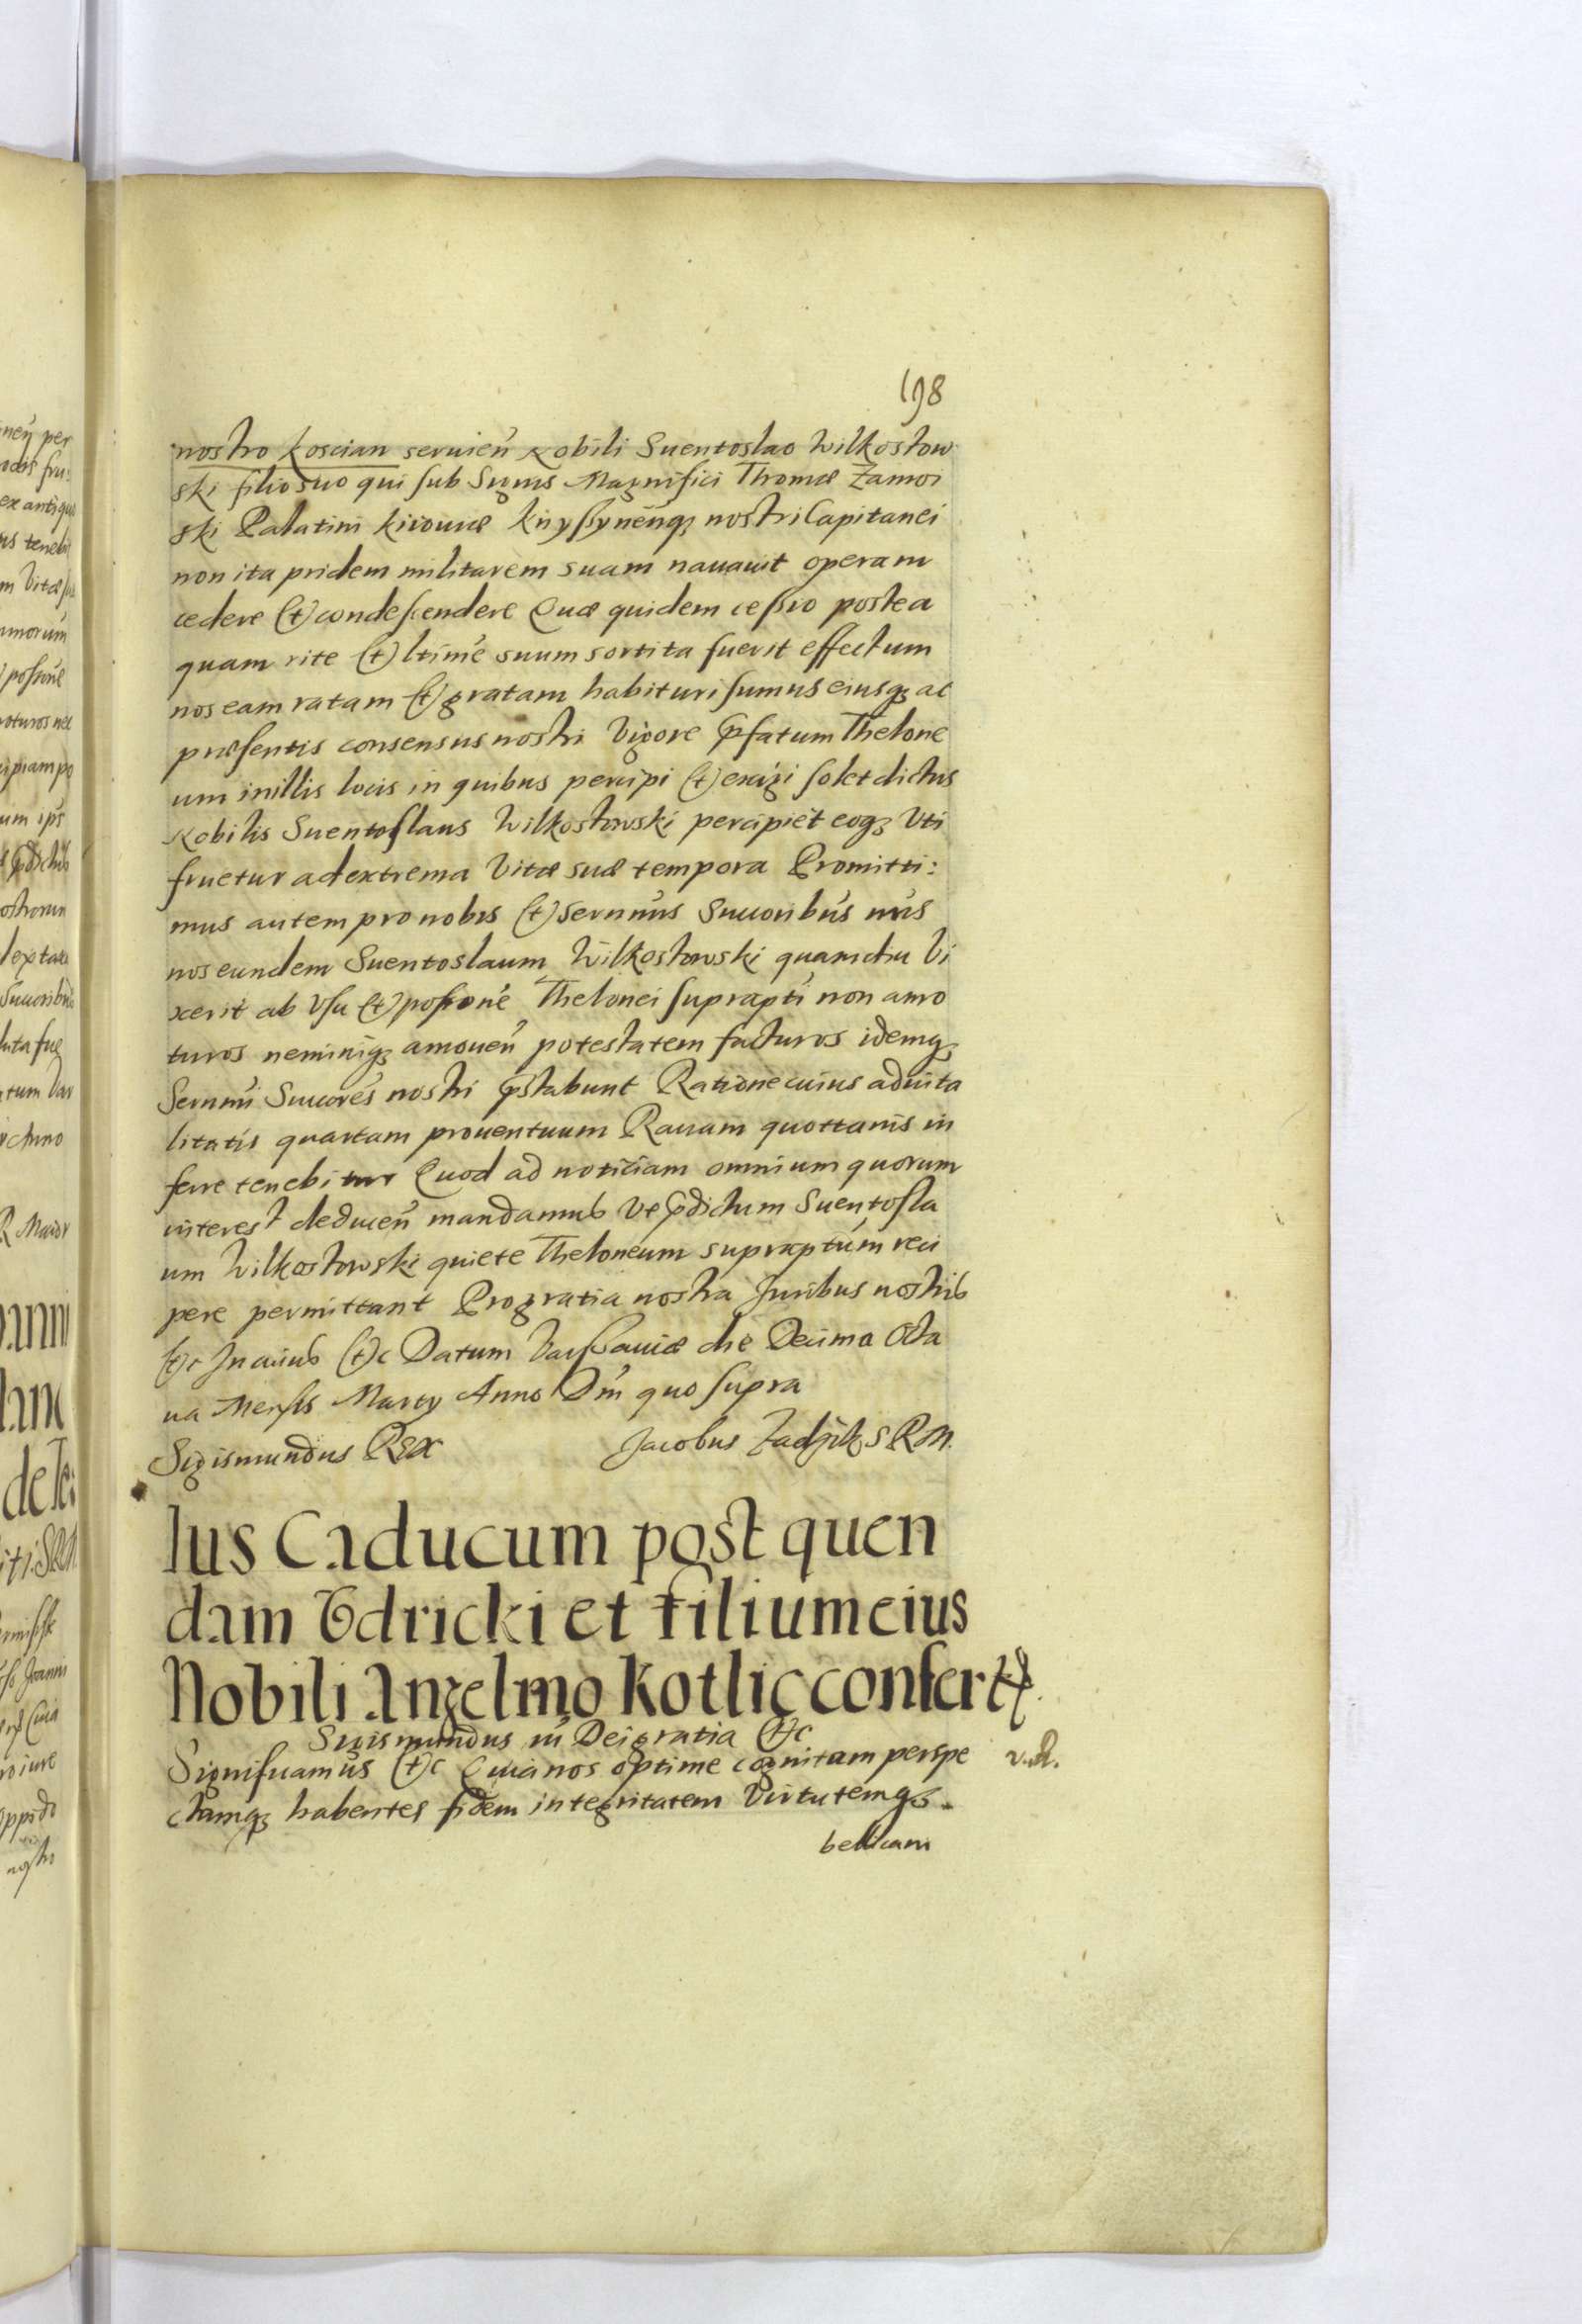 198
nostro Koscian seruien̄ Nobili Suentoslao Wilkostow
ski filio suo qui sub Signis Magnifici Thomæ Zamoi
ski Palatini Kiiouiæ Knyssynen̄q nostri Capitanei
non ita pridem militarem suam nauauit operam
cedere (et) condescendere Quæ quidem cessio postea
quam rite (et) ltime suum sortita fuerit effectum
nos eam ratam (et) gratam habituri sumus eiusq ac
præsentis consensus nostri Vigore p̄fatum Thelone
um in illis locis in quibus percipi (et) exigi solet dictus
Nobilis Suentoslaus Wilkostowski percipiet eoq Vti
fruetur ad extrema Vitæ suæ tempora Promitti:
mus autem pro nobis (et) Sernmis Succoribus nris
nos eundem Suentoslaum Wilkostowski quamdiu Vi
xerit ab Vsu (et) possone Thelonei suprapti non amo
turos neminiq amouen̄ potestatem facturos idemq
Sernmi Succores nostri p̄stabunt Ratione cuius aduita
litatis quartam prouentuum Rauam quottanis in
ferre tenebitur Quod ad noticiam omnium quorum
interest deducen̄ mandamus Vt p̄dictum Suentosla
um Wilkostowski quiete Theloneum supraptum reci
pere permittant Pro gratia nostra Juribus nostris
(et)c In cuius (et)c Datum Varssauiæ die Decima Octa
ua Mensis Marty Anno Dni quo supra
Sigismundus Rex Jacobus Zadzik S R M.
Ius Caducum post quen
dam Edricki et filium eius
Nobili Anzelmo Kotlic confert(r).
Sigismundus iii Dei gratia (et)c
Significamus (et)c Quia nos optime cognitam perspe
ctamq habentes fidem integritatem Virtutemq
bellicam